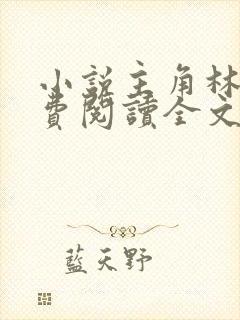 小說主角林
費閱讀全文
藍天野